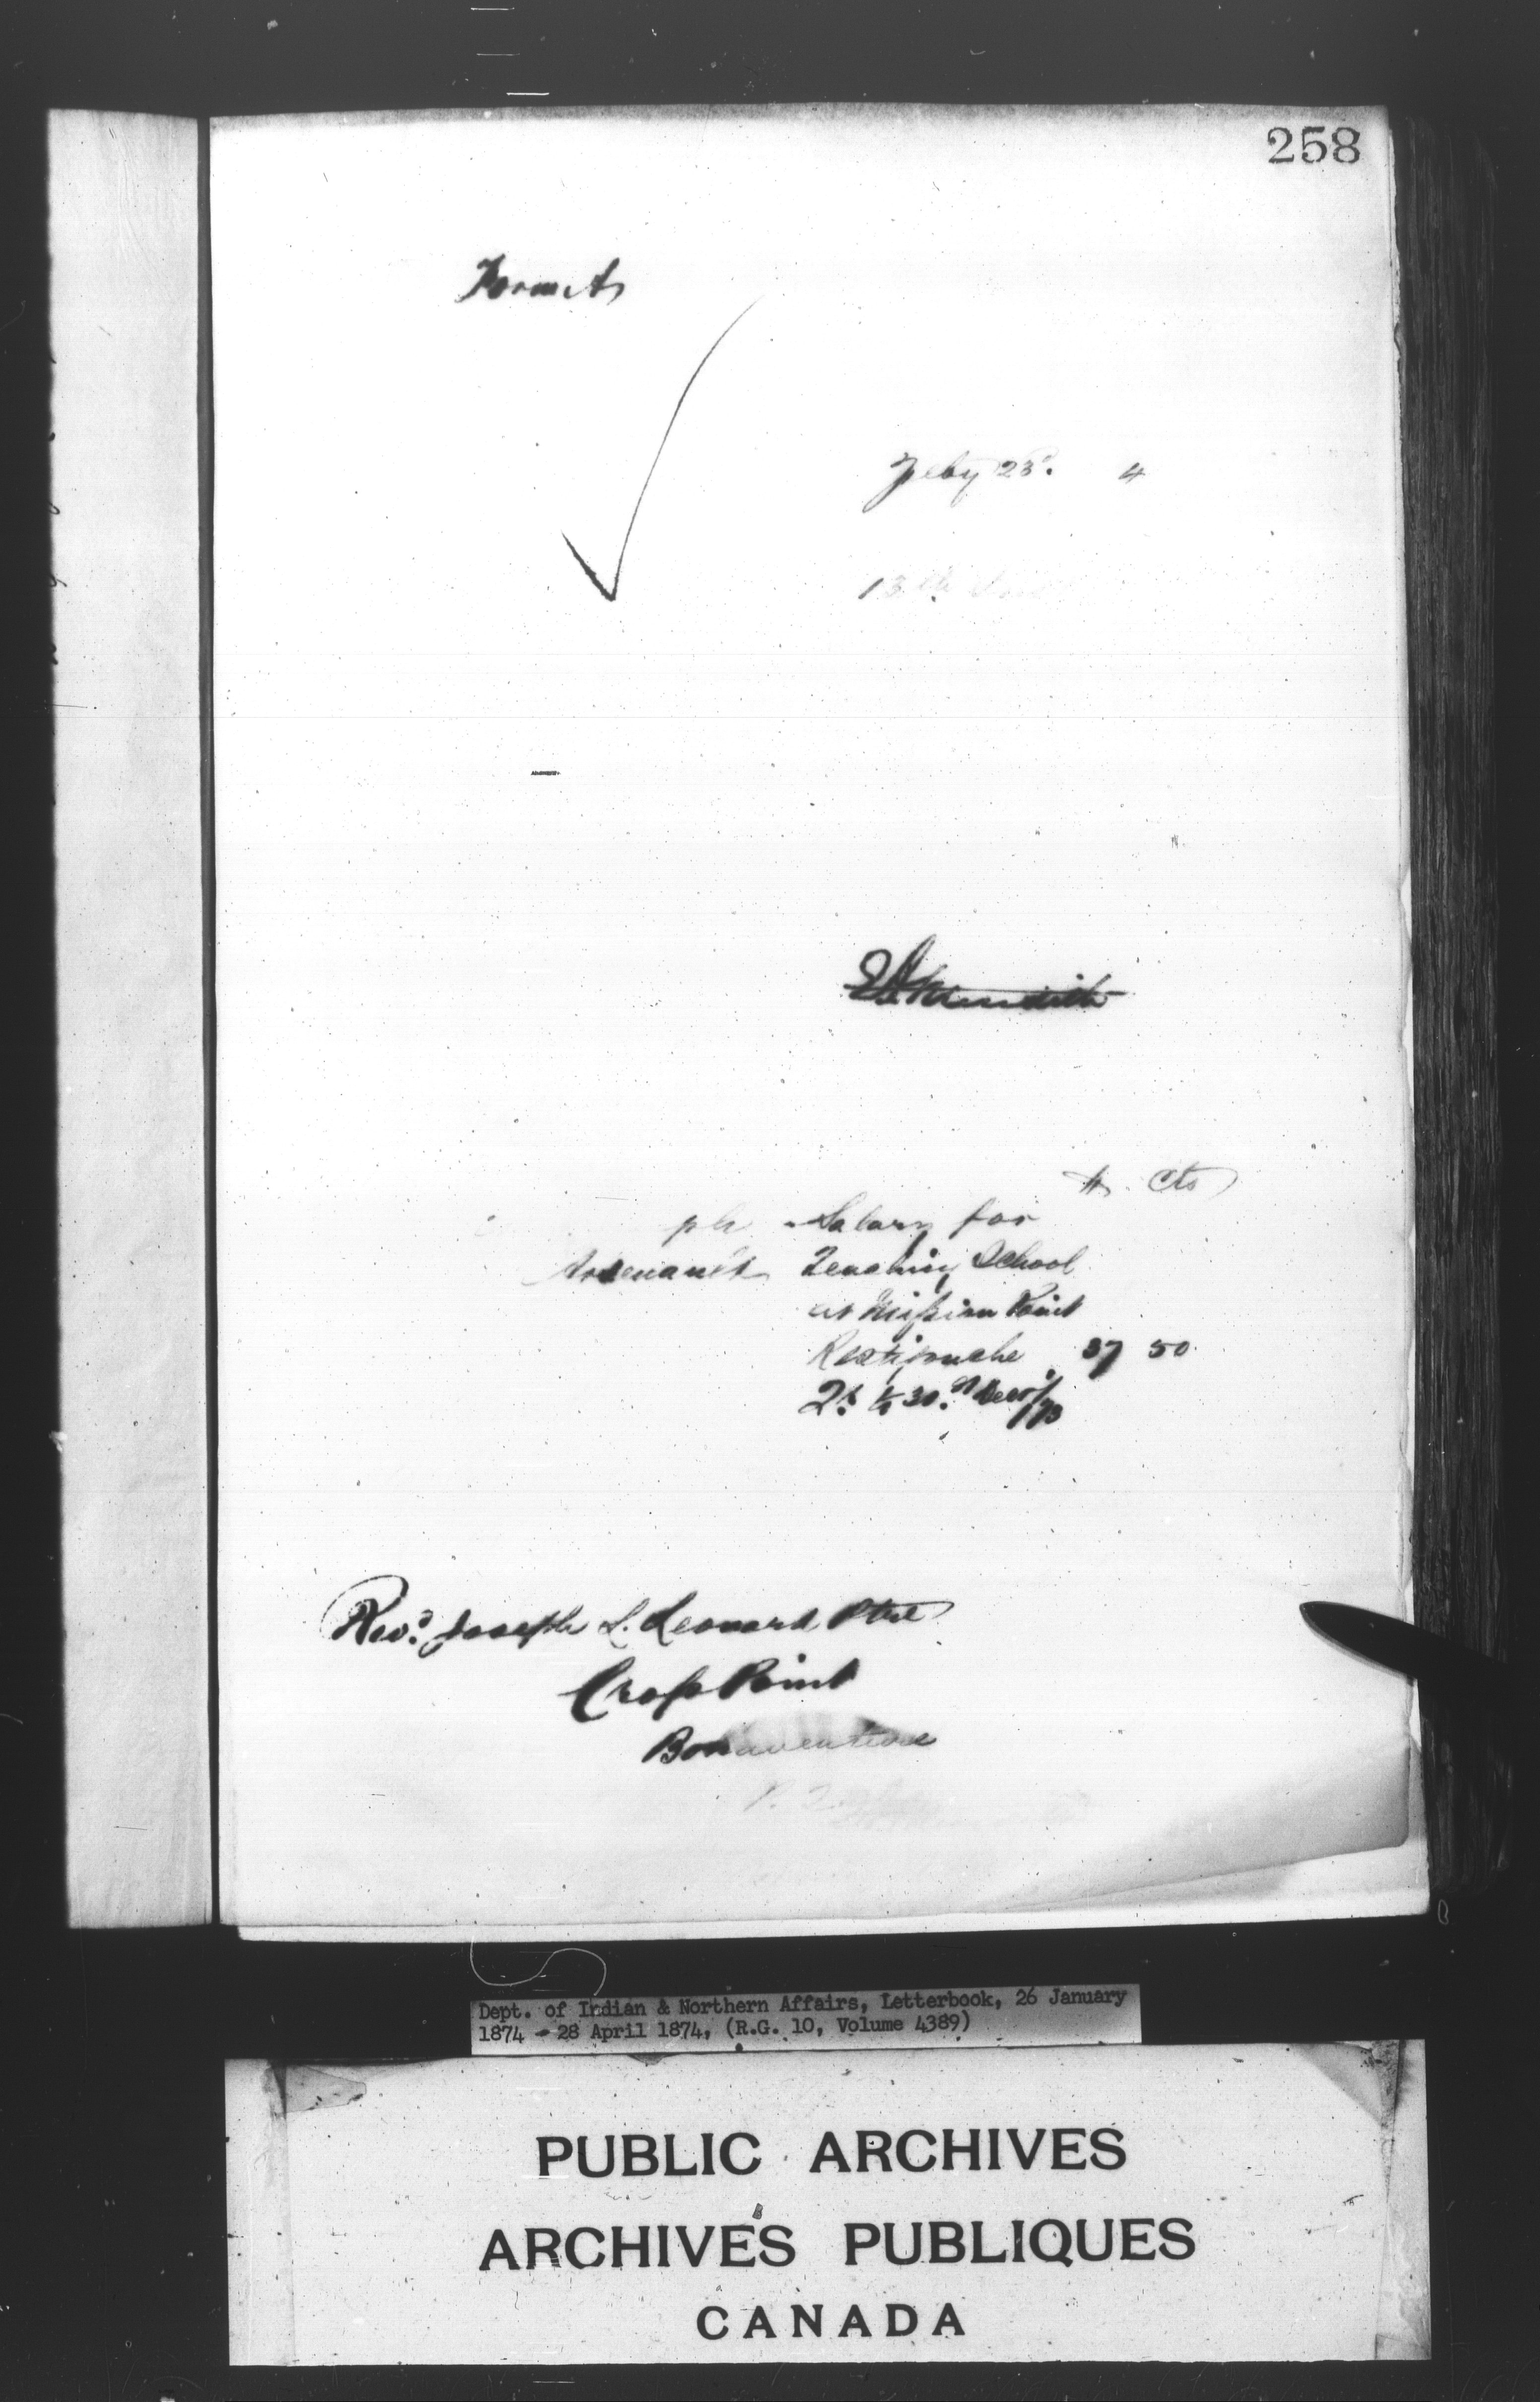 258
Form A
Feby 23d. 4
13th
$ Cts
ph Salary for
Arsenault Teaching School
at Mission Point
Restigouche 37 50
Revd. Joseph L. Leonard Ptre
Cross Point
Bonaventure
P. Q.
Dept. of Indian & Northern Affairs, Letterbook, 26 January
1874 - 28 April 1874, (R.G. 10, Volume 4389)
PUBLIC ARCHIVES
ARCHIVES PUBLIQUES
CANADA